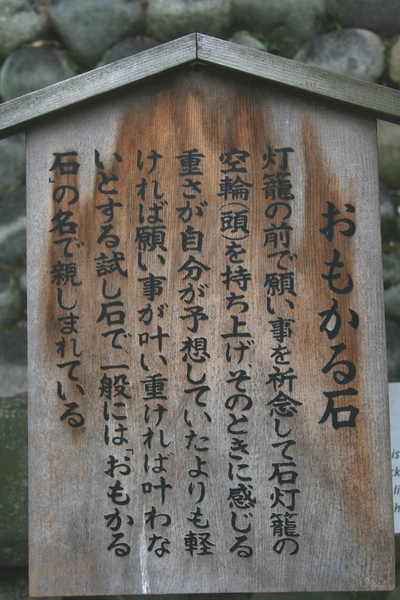 おもかる石
灯籠の前で願い事を祈念して石灯籠の
空輪(頭)を持ち上げ、そのときに感じる
重さが自分が予想していたよりも軽
ければ願い事が叶い、重ければ叶わな
いとする試し石で、一般には「おもかる
石」の名で親しまれている。